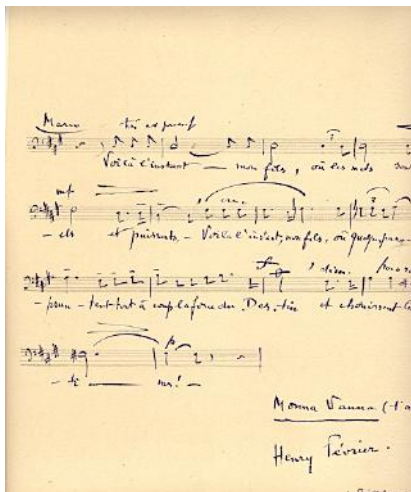 Marco très expressif
Voilà l'instant — mon fils, où les mots
mf
- els et puissants, - Voilà l'instant, mon fils, où quelques
f dim. poco
- prun - tent tout à coup la force du Des - tin et choisissent
p
- ti — mes! -
Monna Vanna
Henry Février.